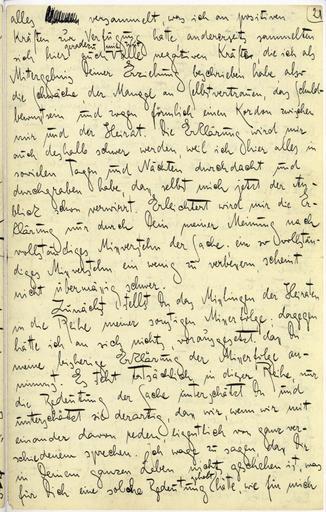 21
alles versammelt, was ich an positiven
Kräften zur Verfügung hatte andererseits sammelten
sich hier auch geradezu mit Wut alle negativen Kräfte die ich als
Mitergebnis Deiner Erziehung beschrieben habe also
die Schwäche der Mangel an Selbstvertrauen, das Schuld-
bewusstsein und zogen förmlich einen Kordon zwischen
mir und der Heirat. Die Erklärung wird mir
auch deshalb schwer werden weil ich hier alles in
sovielen Tagen und Nächten durchdacht und
durchgraben habe dass selbst mich jetzt der An-
blick schon verwirrt. Erleichtert wird mir die Er-
klärung nur durch Dein meiner Meinung nach
vollständiges Missverstehn der Sache; ein so vollstän-
diges Missverstehn ein wenig zu verbessern scheint
nicht übermässig schwer.
Zunächst stellst Du das Misslingen der Heiraten
in die Reihe meiner sonstigen Misserfolge; dagegen
hätte ich an sich nichts, vorausgesetzt, dass Du
meine bisherige Erklärung der Misserfolge an-
nimmst. Es steht tatsächlich in dieser Reihe nur
die Bedeutung der Sache unterschätzt Du und
unterschätzt sie derartig, dass wir wenn wir mit
einander davon reden, eigentlich von ganz ver-
schiedenem sprechen. Ich wage zu sagen dass Dir
in Deinem ganzen Leben nichts geschehen ist, was
für Dich eine solche Bedeutung gehabt hätte, wie für mich